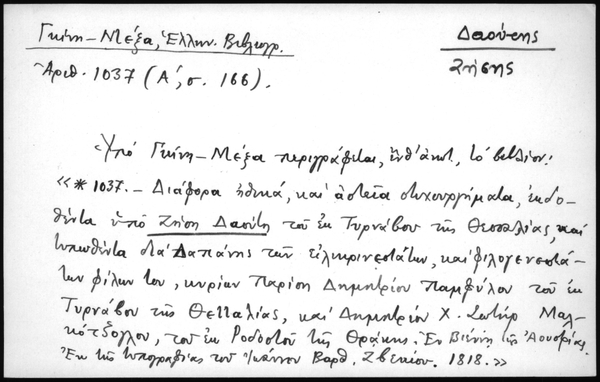 Γκίνη - Μέξα, Ἑλλην. Βιβλιογρ.
Δαούτης
Ζήσης
Ἀριθ. 1037 (Α΄, σ. 166).
Ὑπό Γκίνη - Μέξα περιγράφεται, ἔνθ' ἀνωτ., τό βιβλίον:
«*1037. - Διάφορα ἠθικά, καί ἀστεῖα στιχουργήματα, ἐκδο-
θέντα ὑπό Ζήση Δαούτη τοῦ ἐκ Τυρνάβου τῆς Θεσσαλίας, καί
τυπωθέντα διά δαπάνης τῶν εἰλικρινεστάτων, καί φιλογενεστά-
των φίλων του, κυρίων Παρίση Δημητρίου Παμφύλου τοῦ ἐκ
Τυρνάβου τῆς Θετταλίας, καί Δημητρίου Χ. Σωτήρ Μαλ-
κότζογλου, τοῦ ἐκ Ροδοστοῦ τῆς Θράκης. Ἐν Βιέννῃ τῆς Αουστρίας.
Ἐκ τῆς τυπογραφίας τοῦ Ἰωάννου Βαρθ. Ζβεκίου. 1818.»